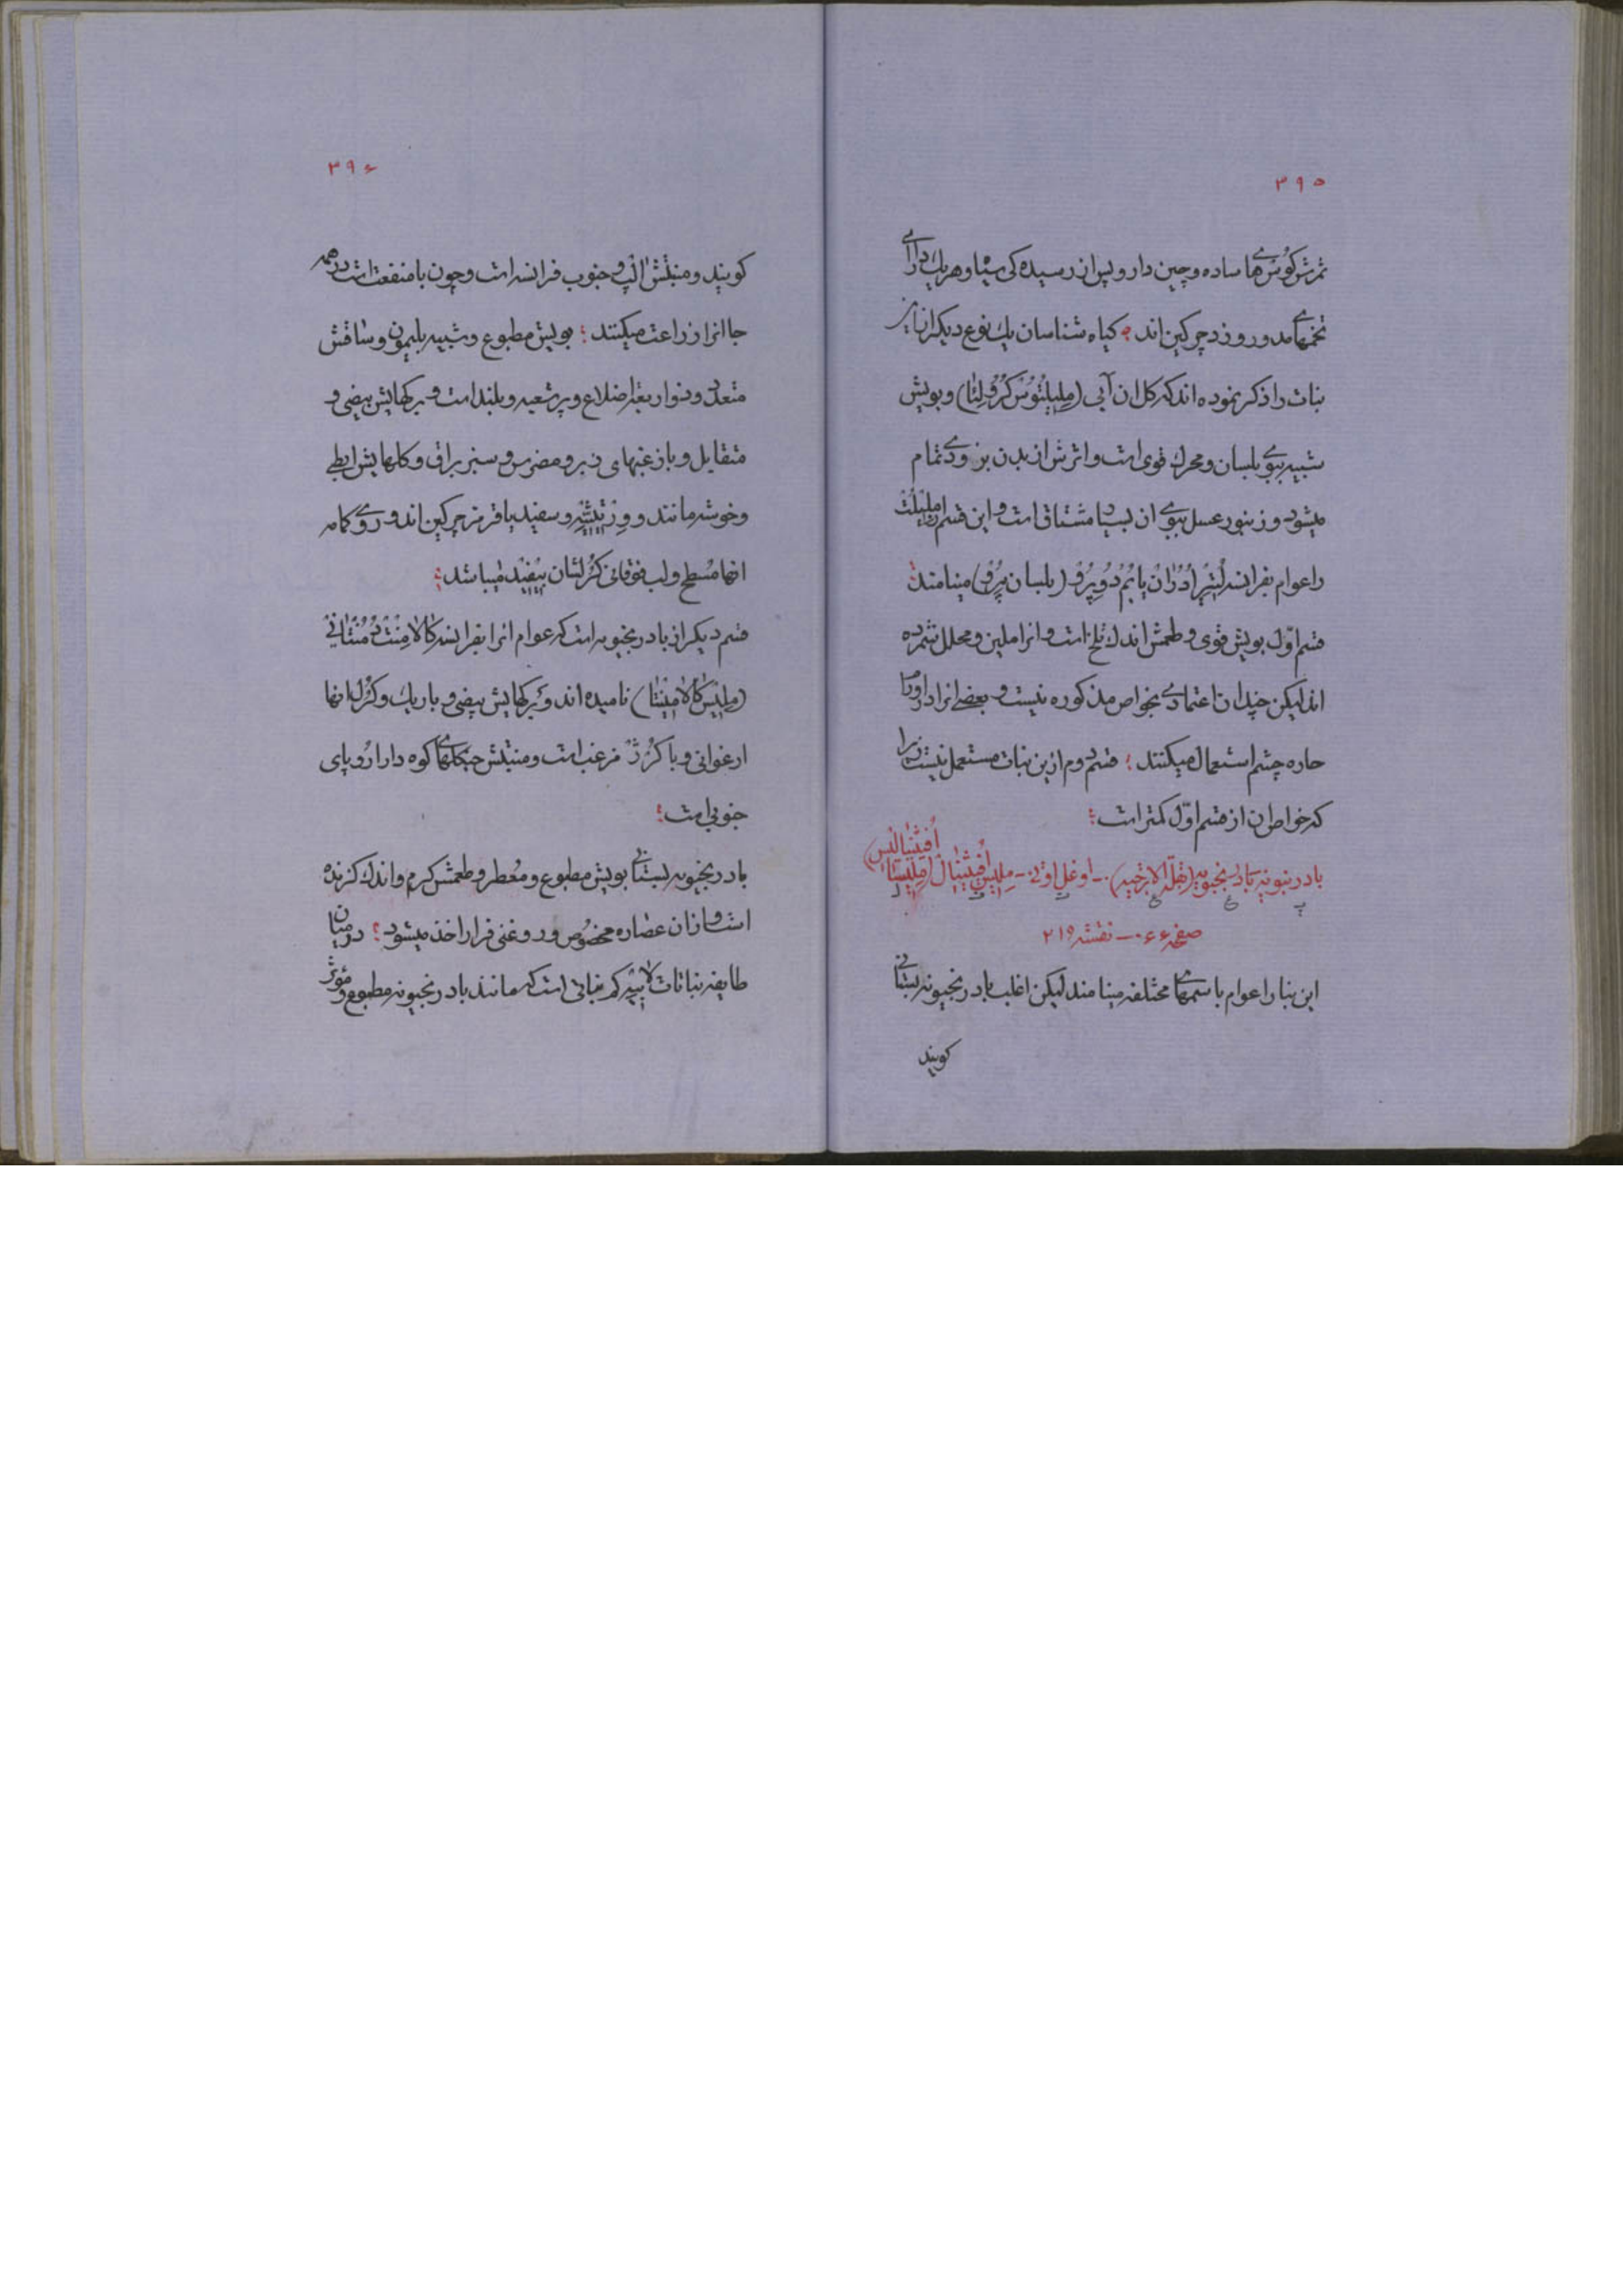 ۳۹۵
ثمرش گوس‌های ساده و چین دار و پس از رسیده‌کی سیاه و هر یك دارای
تخمهای مدور و زرد چرکین اند؛ کیاه شناسان یك نوع دیکر از این
نبات را ذکر نموده اند که کل ان آبی (مِلیلُتُوسْ کُرُولِئا) و بویش
شبیه ببوی بلسان و محرك قوی است و اثرش از بدن بزودی تمام
میشود و زنبور عسل ببوی ان بسیار مشتاق است و این قسم مِلیلُتْ
را عوام بفرانسه لُتیِرْ اُدُرانْ یا بُمْ دُو پِرُو (بلسان پِرُو) مینامند؛
قسم اوّل بویش قوی و طعمش اندك تلخ است و انرا ملین و محلل شمرده
اند لیکن چندان اعتمادی بخواص مذکوره نیست و بعضی انرا در اورام
حاره چشم استعمال میکنند؛ قسم دوم ازین نبات مستعمل نیست زیرا
که خواص ان از قسم اوّل کمتر است؛
بادرنبونه بادرنجبویه (بقلة الاترجیه) ۰- اوغل اوتی ۰- مِلیسْ اُفیثینالْ (مِلیسّا اُفیثینالیسْ)
صفحه ۰۶۶ – نقشه ۲۱۹
این نبات را عوام باسمهای مختلفه مینامند لیکن اغلب بادرنجبونه بستانی
کویند
۳۹۶
کویند و منبتش الْپ و جنوب فرانسه است و چون با منفعت است در همه
جا انرا زراعت میکنند؛ بویش مطبوع و شبیه بلیمون و ساقش
متعدد و ذوار بعة اضلاع و پر شعبه و بلند است و برکهایش بیضی و
متقابل و با زغبهای زبر و مضرس و سبز براق و کلهایش ابطی
و خوشه مانند و وِرْتیثیلِه و سفید یا قرمز چرکین اند و روی کاسه
انها مُسَطح و لب فوقانی کُرُلِشان بیفید میباشد؛
قسم دیکر از بادرنجبویه است که عوام انرا بفرانسه کالامِنْتْ دُ مُنْتانْیْ
(مِلیسّ کالامِنْتا) نامیده اند و برکهایش بیضی و باریك و کُرُل انها
ارغوانی و با کُرُژْ مزغب است و منبتش جنکلهای کوه دار اروپای
جنوبی است؛
بادرنجبونه بستانی بویش مطبوع و مُعطر و طعمش کرم و اندك کزنده
است و از ان عصاره مخصوص و روغنی فرار اخذ میشود؛ در میان
طایفه نباتات لابیِه کم نباتی است که مانند بادرنجبونه مطبوع و مؤثر